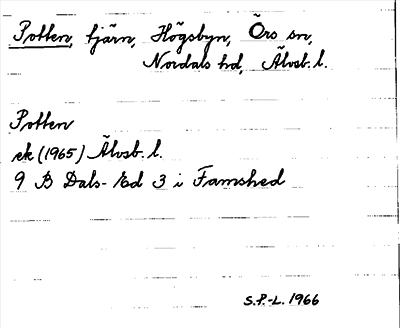 Potten, tjärn, Högsbyn, Örs sn,
Nordals hd, Älvsb. l.
Potten
ek (1965) Älvsb. l.
9 B Dals-Ed 3 i Framshed
S.P.-L. 1966